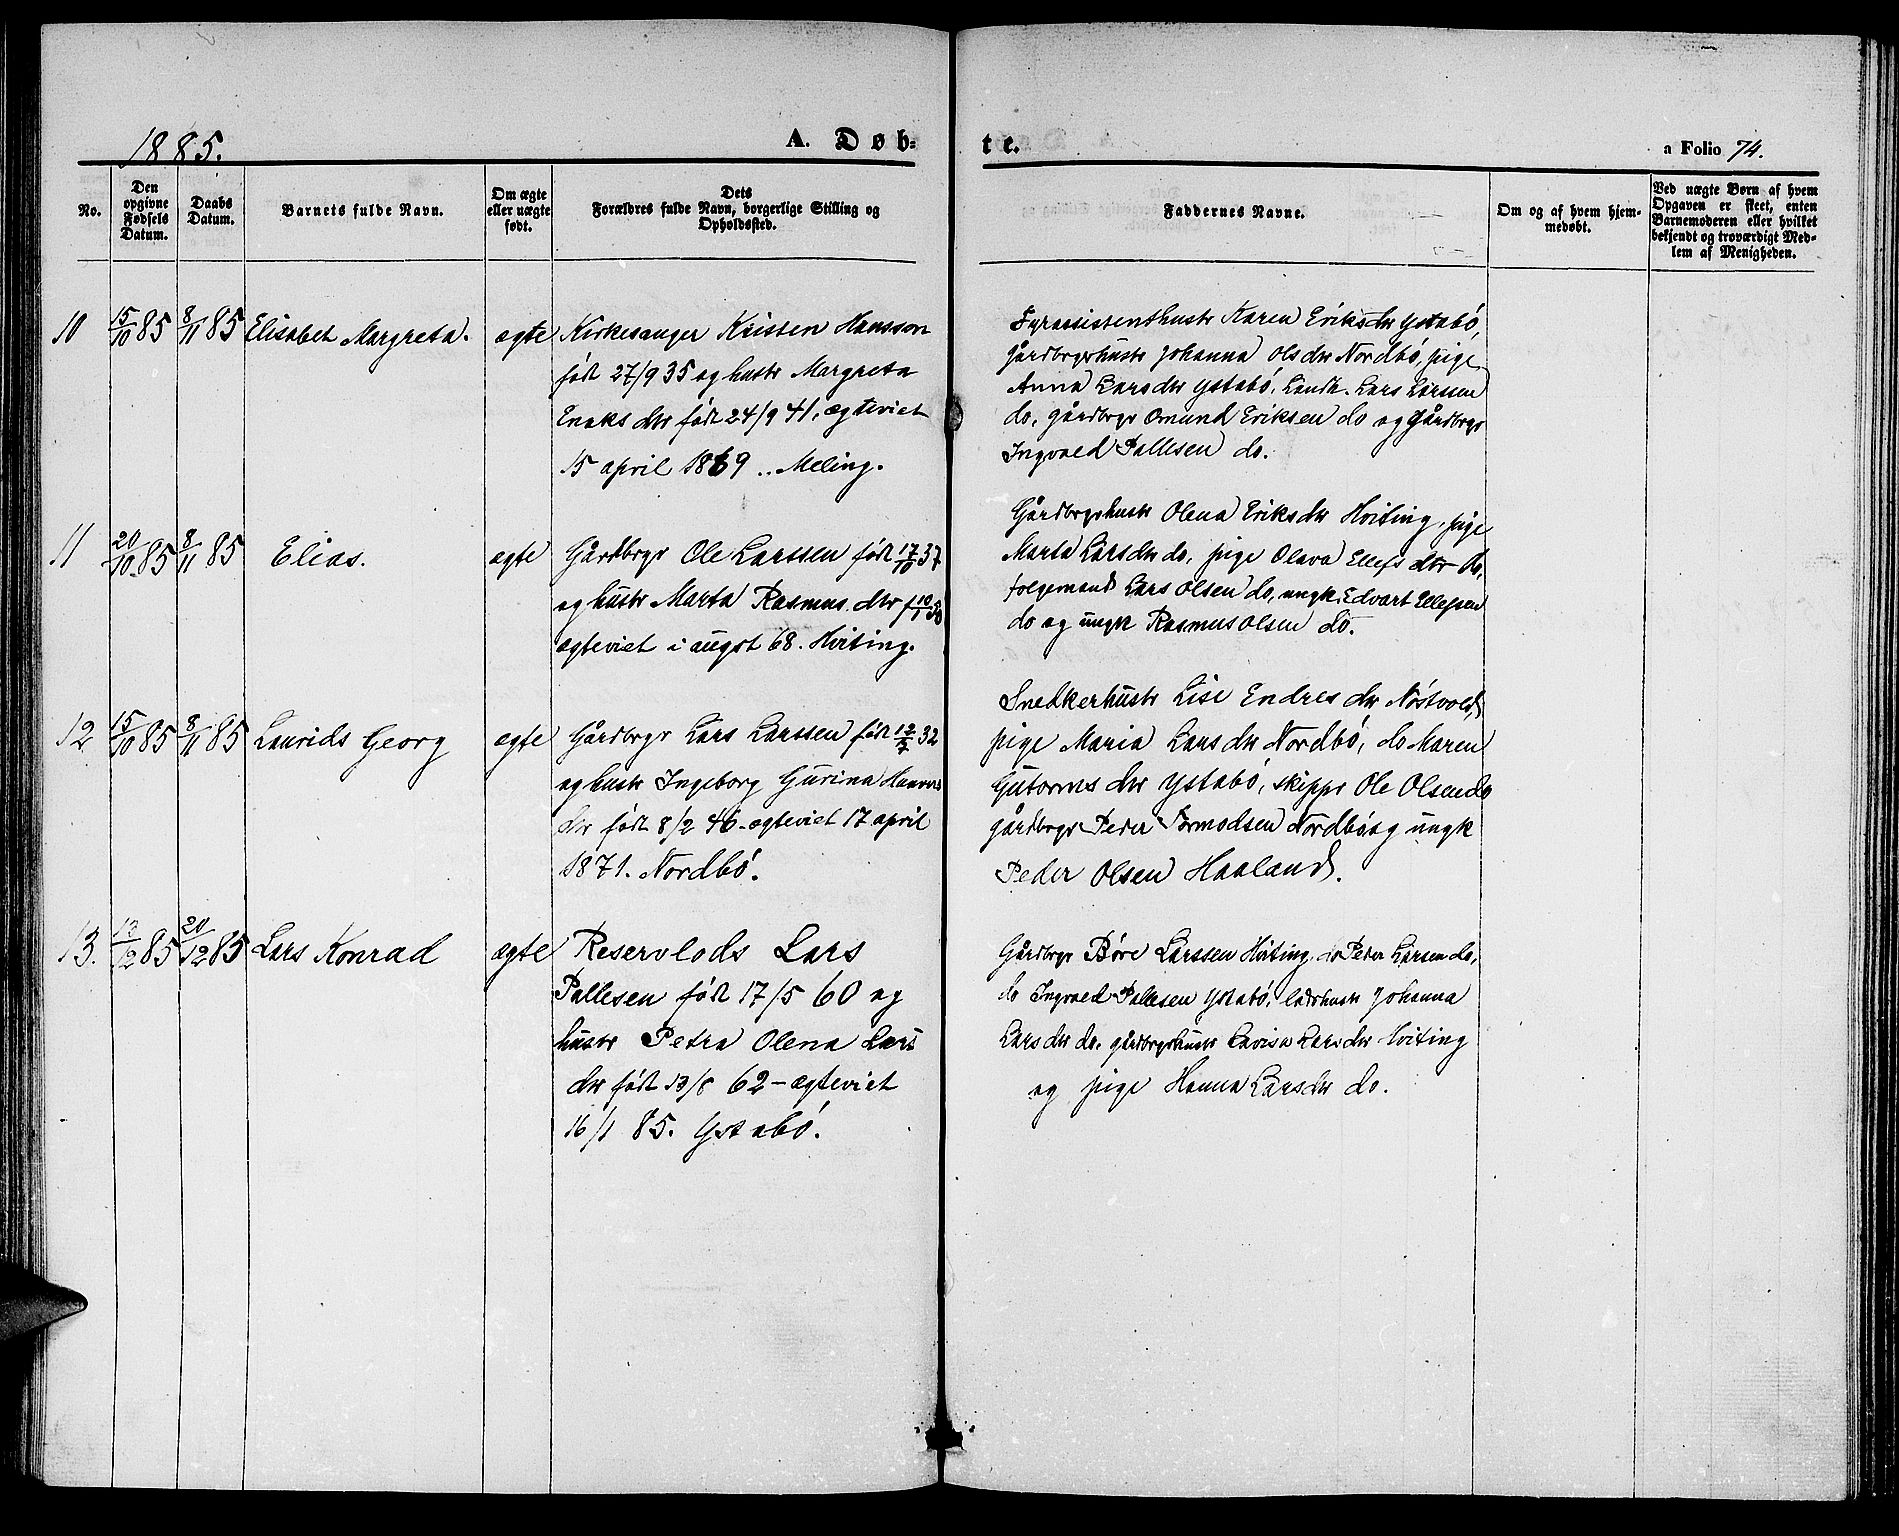 1885.
A. Døb-
te.
a Folio 74.
No.
Den
opgivne
Fødsels
Datum.
Daabs
Datum.
Barnets fulde Navn.
Om ægte
eller uægte
født.
Dets
Forældres fulde Navn, borgerlige Stilling og
Opholdssted.
Faddernes Navne.
Om og af hvem hjem-
medøbt.
Ved uægte Børn af hvem
Opgaven er skeet, enten
Barnemoderen eller hvilket
bekjendt og troværdigt Med-
lem af Menigheden.
10
15/10 85
8/11 85
Elisabet Margreta.
ægte
Kirkesanger Kristen Hansson
født 27/9 35 og hustr Margreta
Enoks dtr født 24/9 41, ægteviet
15 april 1869 .. Meling.
Fyrassistenthustr Karen Eriks dtr Ystabó,
gårdbrgrhustr Johanna Ols dtr Nordbó, pige
Anna Lars dtr Ystabó, Landh. Lars Larssen
do, gårdbrgr Omund Eriksen do og gårdbrgr
Ingvald Pallesen do.
11
20/10 85
8/11 85
Elias.
ægte
Gårdbrgr Ole Larssen født 17/10 37
og hustr Marta Rasmus dtr
ægteviet i augst 68. Hviting.
Gårdbrgrhustr Olena Eriks dtr Hviting, pige
Marta Lars dtr do, pige Olava Ellefs dtr do,
folgemand Lars Olsen do, ungk. Edvart Ellefsen
do og ungk Rasmus Olsen do.
12
15/10 85
8/11 85
Laurids Georg
ægte
Gårdbrgr Lars Larssen født 32
og hustr Ingeborg Gurina
dtr født 8/2 46 - ægteviet 17 april
1871. Nordbó.
Snedkerhustr Lise Endres dtr Nóstvold,
pige Maria Lars dtr Nordbó, do Maren
Gutorms dtr Ystabó, skippr Ole Olsen do
gårdbrgr Peder Tormodsen Nordbó og ungk
Peder Olsen Haaland.
13.
13/12 85
20/12 85
Lars Konrad
ægte
Reservlods Lars
Pallesen født 17/5 60 og
hustr Petra Olena Lars
dtr født 13/8 62 - ægteviet
16/1 85. Ystabó.
Gårdbrgr Bóre Larssen Hviting, do Peder Larsen do,
do Ingvald Pallesen Ystabó, lodshustr Johanna
Lars dtr do, gårdbrgrhustr Lavisa Lars dtr Hviting
og pige Hanna Lars dtr do.